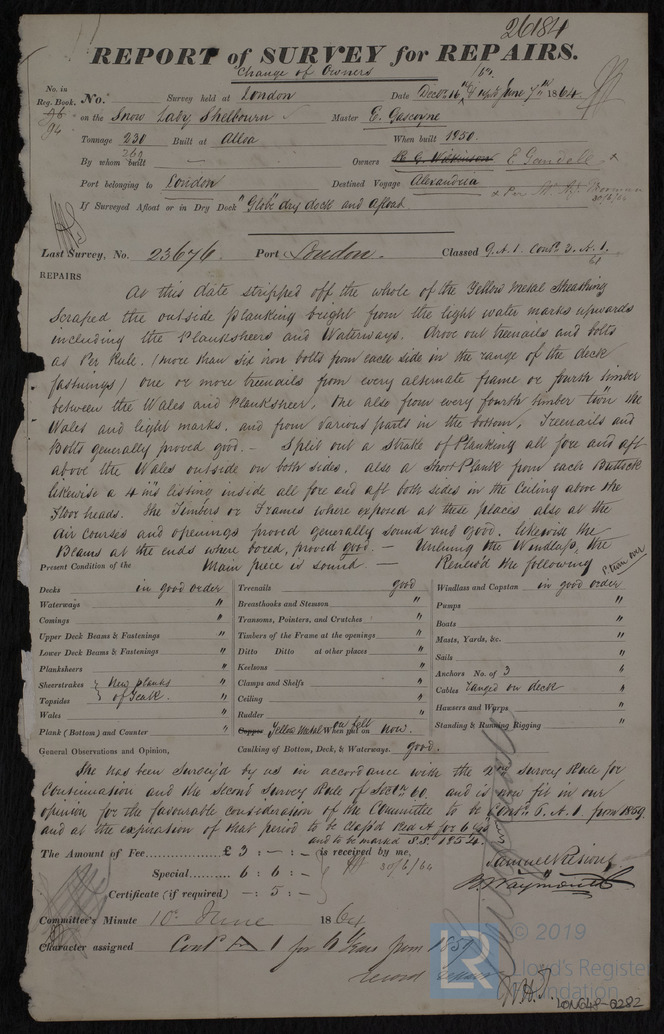 26184
REPORT of SURVEY for REPAIRS.
Change of Owners
No. in Reg. Book. No. Survey held at London Date 1864
96 on the Snow Lady Shelbourn Master E. Gascoyne
94
Tonnage 230 Built at Alloa When built 1850.
260
By whom built Owners R G Wilkinson E Gandell
Port belonging to London Destined Voyage Alexandria
30/6/64
If Surveyed Afloat or in Dry Dock "Globe" dry dock and afloat
Last Survey, No. 23676. Port London. Classed 9. A. 1. Cont. 3. A. 1.
61
REPAIRS
At this date stripped off the whole of the Yellow Metal Sheathing
Scraped the outside planking bright from the light water marks upwards
including the Planksheers and Waterways. Drove out treenails and bolts
as Per Rule. (more than six iron bolts from each side in the range of the deck
fastnings) one or more treenails from every alternate frame or fourth timber
between the Wales and Planksheer, One also from every fourth timber twn the
Wales and light marks, and from various parts in the bottom, Treenails and
Bolts generally proved good. — Split out a Strake of Planking all fore and aft
above the Wales outside on both sides, also a Short Plank from each Buttock
likewise a 4 in listing inside all fore and aft both sides in the Ceiling above the
Floor heads. The Timbers or Frames where exposed at these places also at the
Air courses and openings proved generally sound and good, likewise the
Beams at the ends where bored, proved good. — Unlining the Windlass, the
Present Condition of the Main piece is sound. — Renew'd the following
turn over
Decks in good order Treenails good Windlass and Capstan in good order
Waterways " Breasthooks and Stemson " Pumps "
Comings " Transoms, Pointers, and Crutches " Boats "
Upper Deck Beams & Fastenings " Timbers of the Frame at the openings " Masts, Yards, &c. "
Lower Deck Beams & Fastenings " Ditto Ditto at other places " Sails "
Planksheers " Keelsons " Anchors No. of 3 "
Sheerstrakes } New planks " Clamps and Shelfs " Cables ranged on deck "
Topsides } of Teak. " Ceiling " Hawsers and Warps "
Wales " Rudder " Standing & Running Rigging "
Plank (Bottom) and Counter " Copper Yellow Metal on felt When put on now.
General Observations and Opinion, Caulking of Bottom, Deck, & Waterways. good.
She has been Survey'd by us in accordance with the 2nd Survey Rule for
Continuation and the Second Survey Rule of Sectn 60. and is now fit in our
opinion for the favourable consideration of the Committee to be Contd. 6. A. 1 from 1859
and at the expiration of that period to be class'd Red A for 6 yrs
and to be marked S.S.
The Amount of Fee £ 3 : - : - is received by me,
Special 6 : 6 : - 30/6/64
Certificate (if required) - : 5 : -
B Waymouth
Committee's Minute 10th June 1864
Character assigned Contd A 1 for 6 Years from 1859
record repairs
LR © 2019
Lloyd's Register
Foundation
LON648-0282